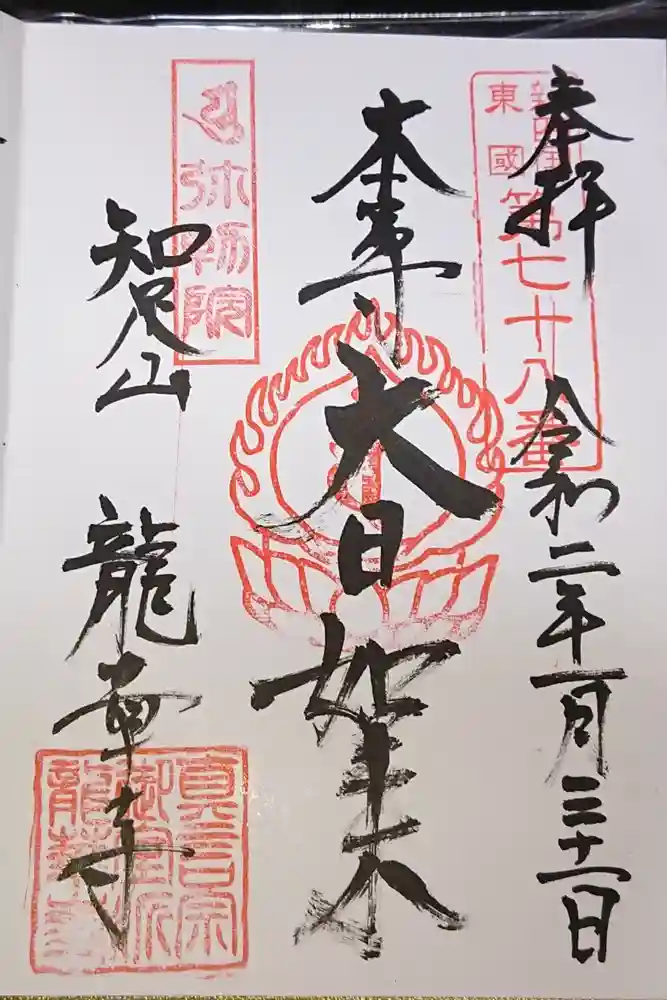 奉拝
令和二年一月三十一日
東國
第七十八番
本尊
大日如来
弥勒院
知足山
龍華寺
真言宗
御室派
龍華寺